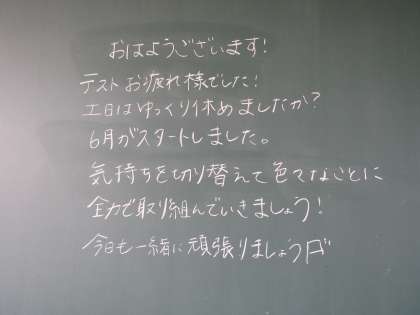 おはようございます!
テストお疲れ様でした!
土日はゆっくり休めましたか?
6月がスタートしました。
気持ちを切り替えて色々なことに
全力で取り組んでいきましょう!
今日も一緒に頑張りましょう